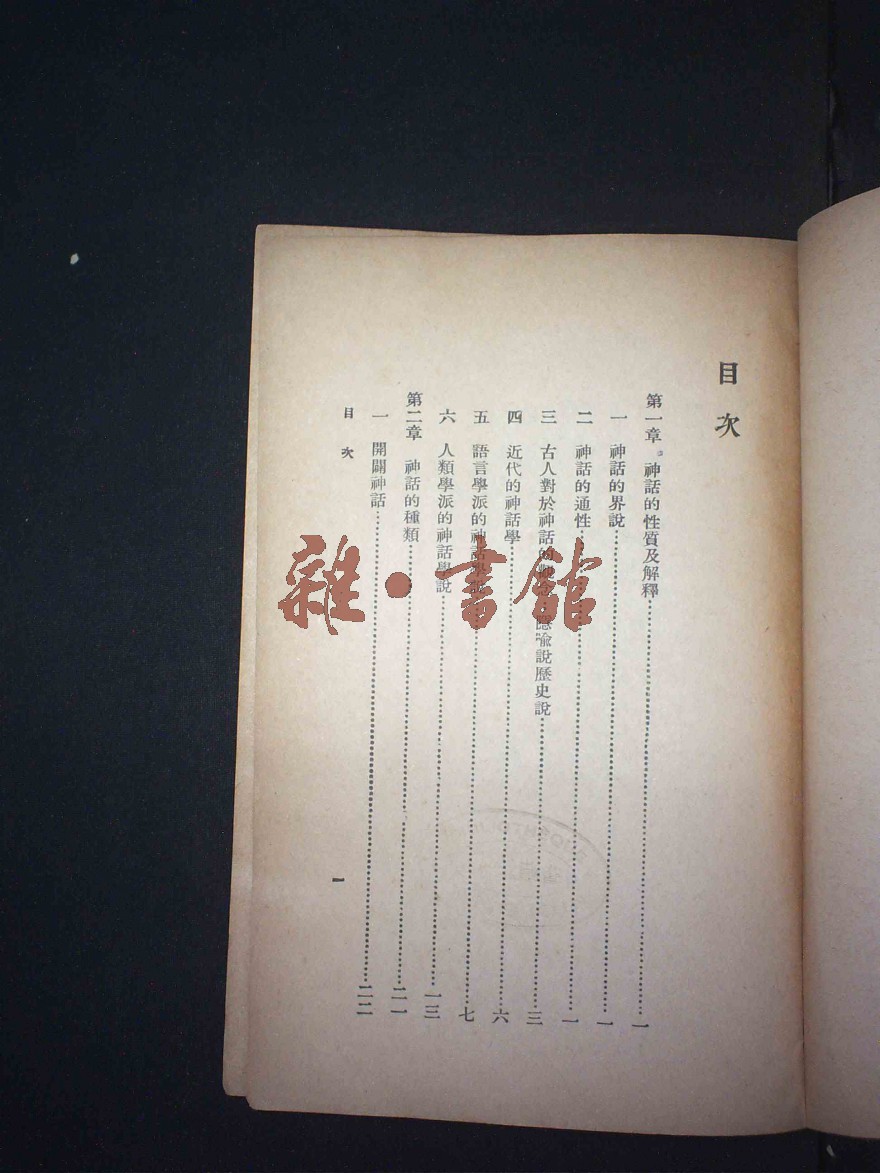 目次
第一章 神話的性質及解釋……一
一 神話的界說……一
二 神話的通性……一
三 古人對於神話的 隱喻說歷史說……三
四 近代的神話學……六
五 語言學派的神話學說……七
六 人類學派的神話學說……一三
第二章 神話的種類……二一
一 開闢神話……二二
目次
一
雜·書館